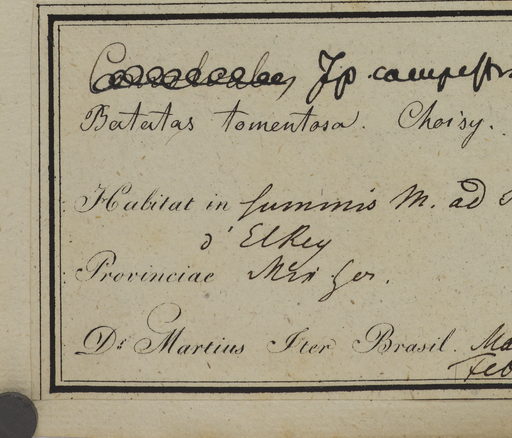 Convolvulus Ip. campestr
Batatas tomentosa. Choisy.
Habitat in summis M. ad
d' ElRey
Provinciae Min Ger.
Dr Martius Iter Brasil. Ma
Feb